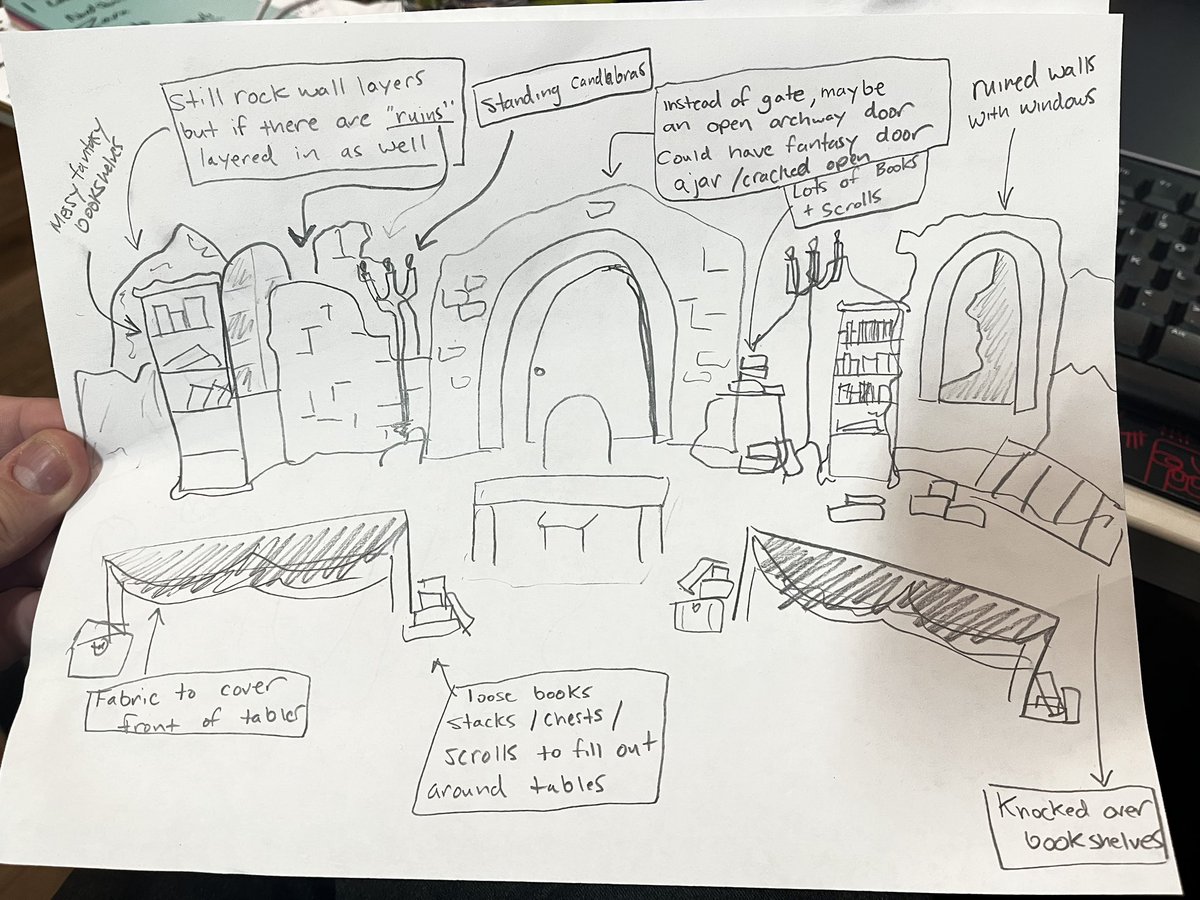 Still rock wall layers
but if there are "ruins"
layered in as well
Standing Candlebras
instead of gate, maybe
an open archway door
Could have fantasy door
ajar / cracked open
Lots of Books
+ Scrolls
ruined walls
with windows
Messy fantasy
bookshelves
Fabric to cover
front of tables
loose books
stacks / chests /
scrolls to fill out
around tables
Knocked over
bookshelves